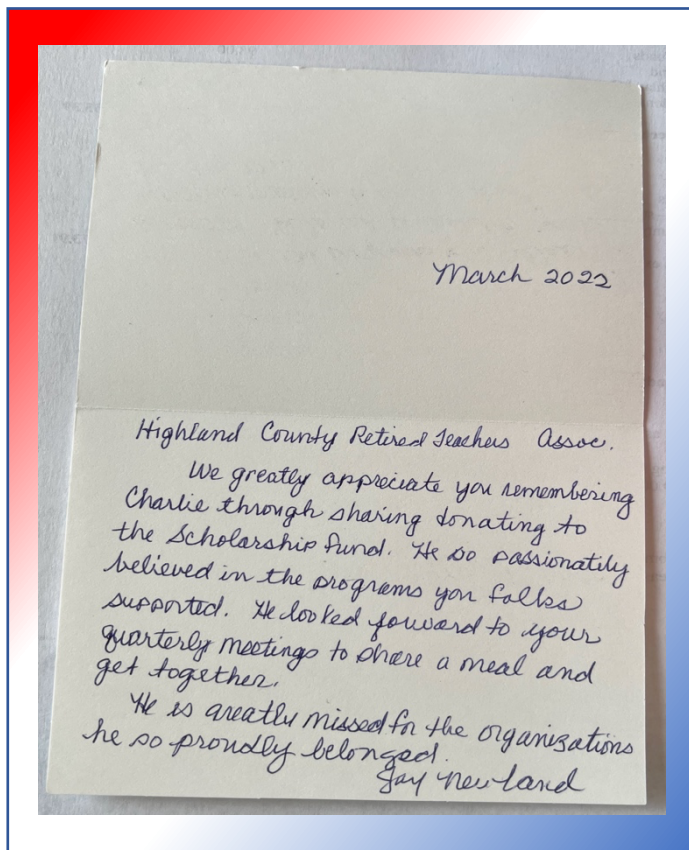 March 2022
Highland County Retired Teachers Assoc.
We greatly appreciate you remembering
Charlie through sharing donating to
the Scholarship Fund. He so passionately
believed in the programs you folks
supported. He looked forward to your
quarterly meetings to share a meal and
get together.
He is greatly missed for the organizations
he so proudly belonged.
Newland